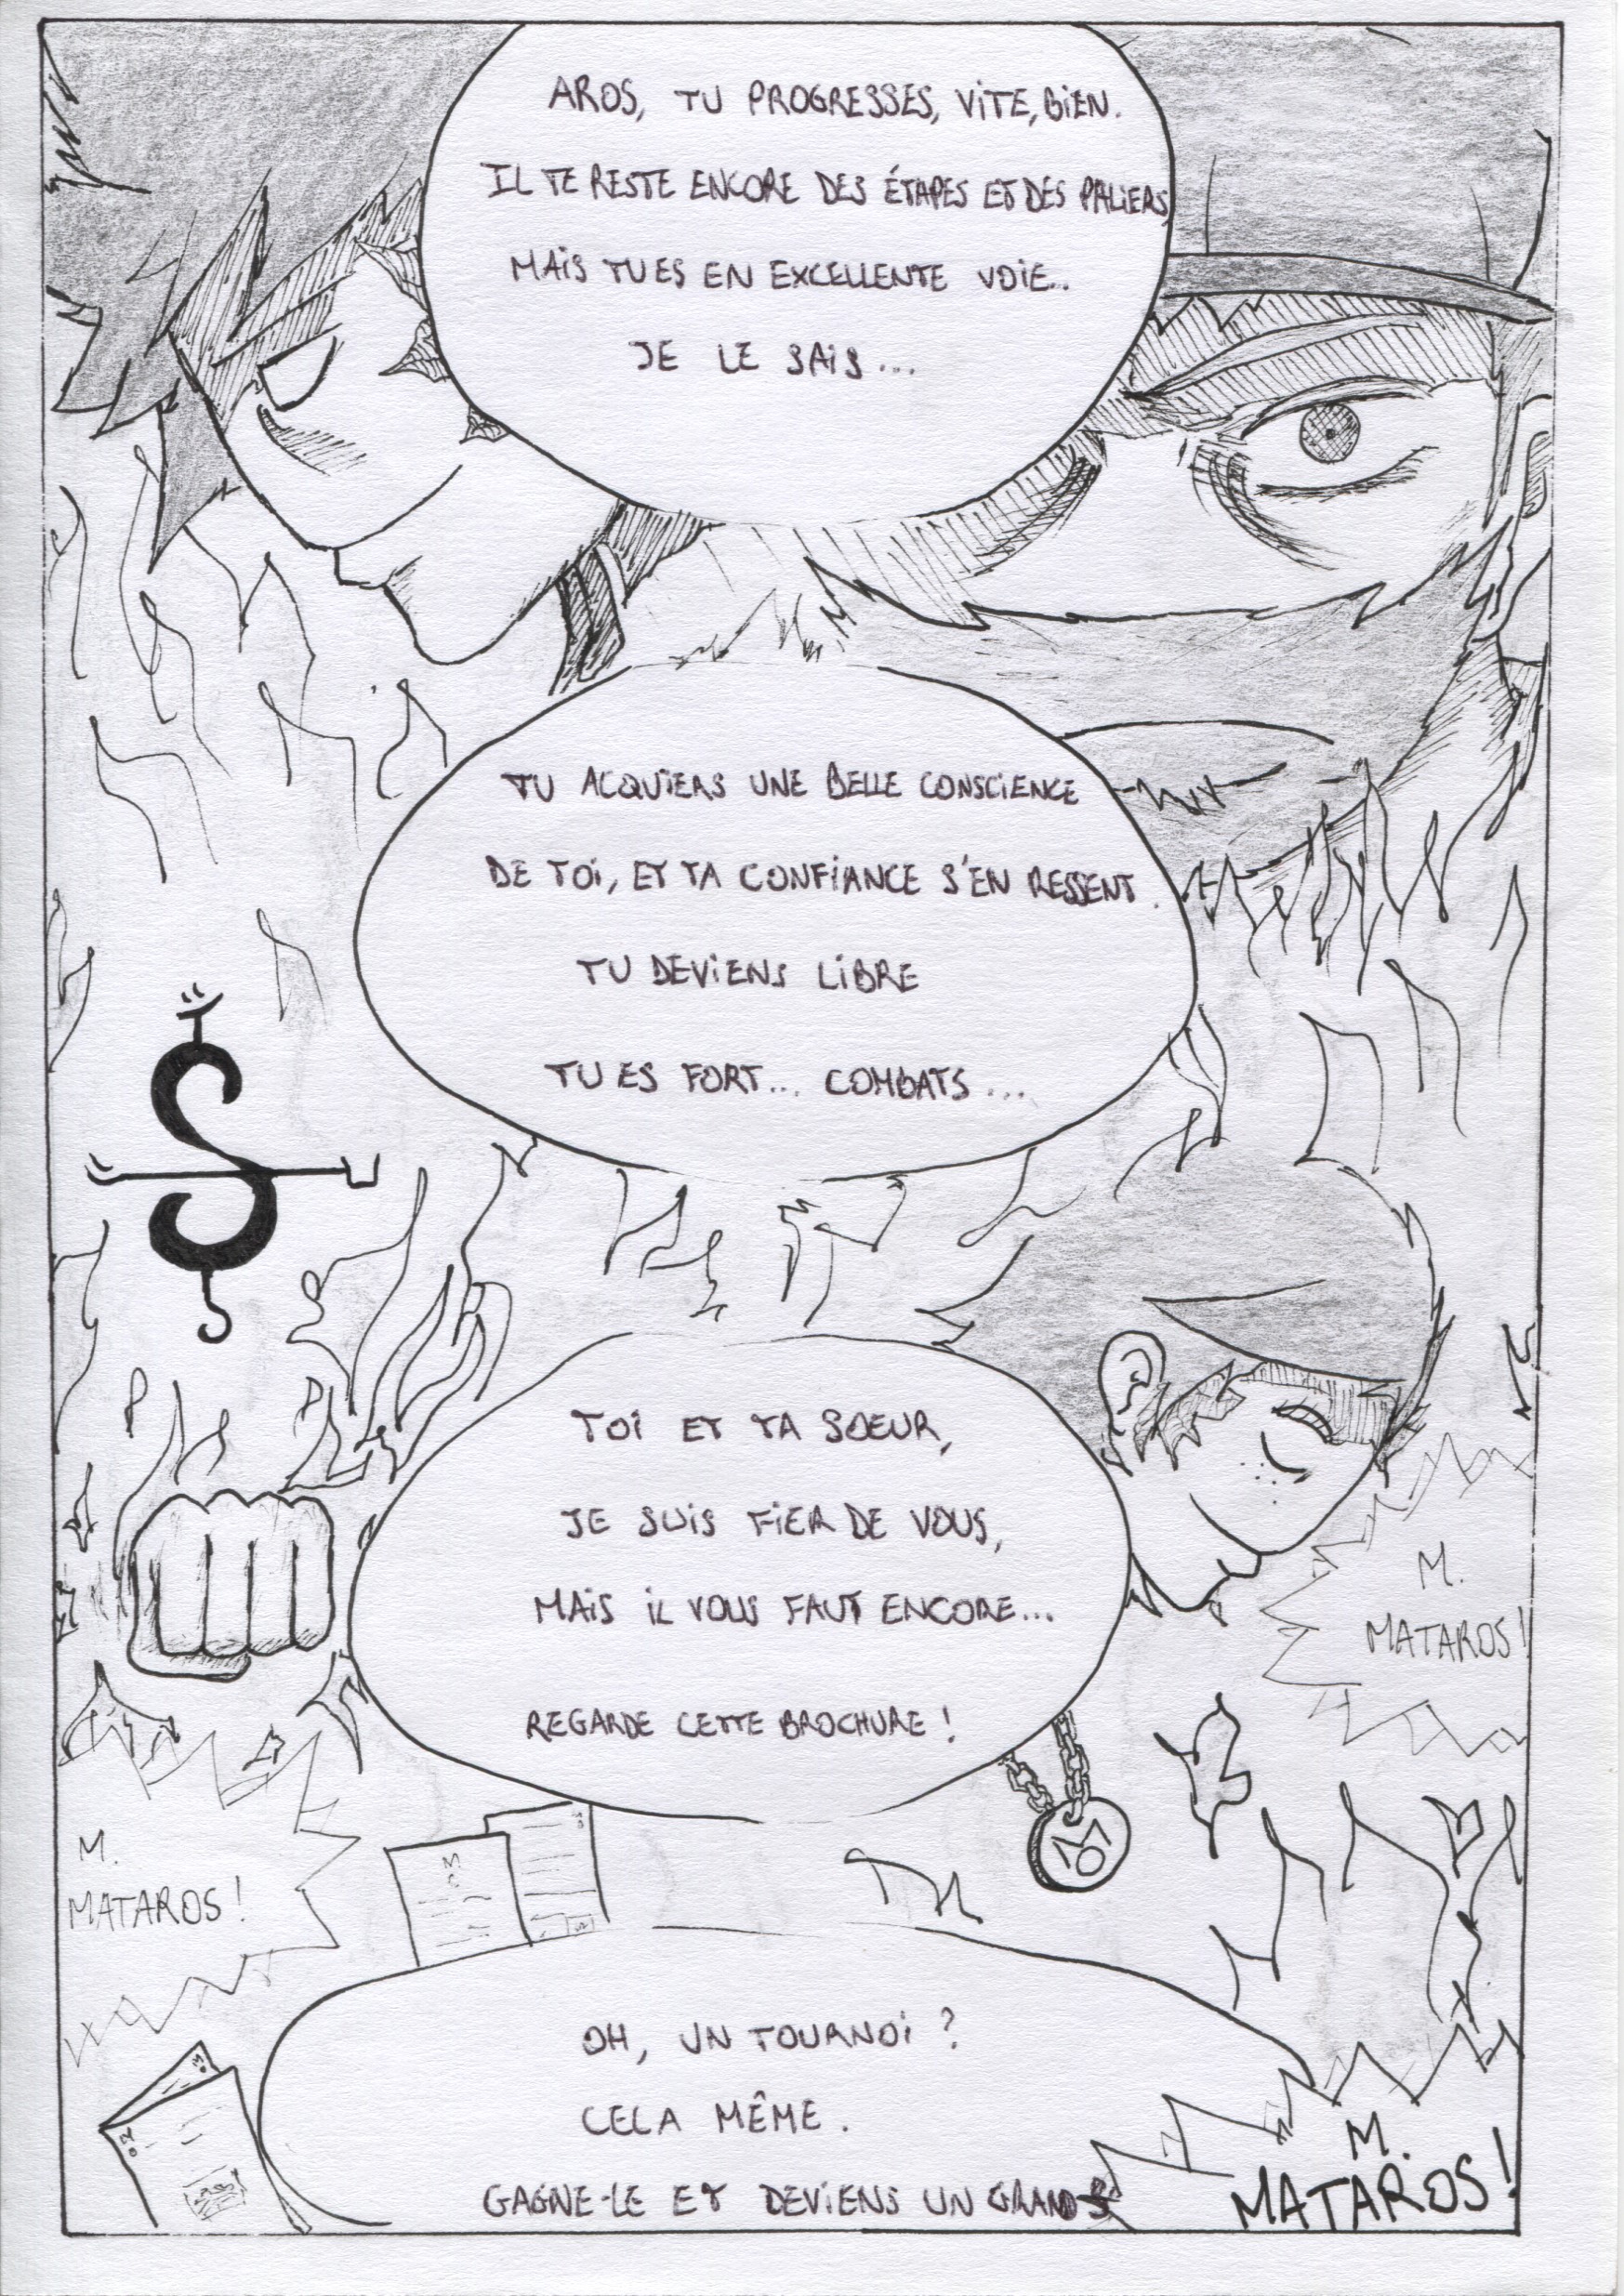 AROS, TU PROGRESSES, VITE, BIEN.
IL TE RESTE ENCORE DES ÉTAPES ET DES PALIERS
MAIS TU ES EN EXCELLENTE VOIE..
JE LE SAIS...
TU ACQUIERS UNE BELLE CONSCIENCE
DE TOI, ET TA CONFIANCE S'EN RESSENT.
TU DEVIENS LIBRE
TU ES FORT... COMBATS...
TOI ET TA SOEUR,
JE SUIS FIER DE VOUS,
MAIS IL VOUS FAUT ENCORE...
REGARDE CETTE BROCHURE !
M.
MATAROS !
M.
MATAROS !
OH, UN TOURNOI ?
CELA MÊME.
GAGNE-LE ET DEVIENS UN GRAND
M.
MATAROS !